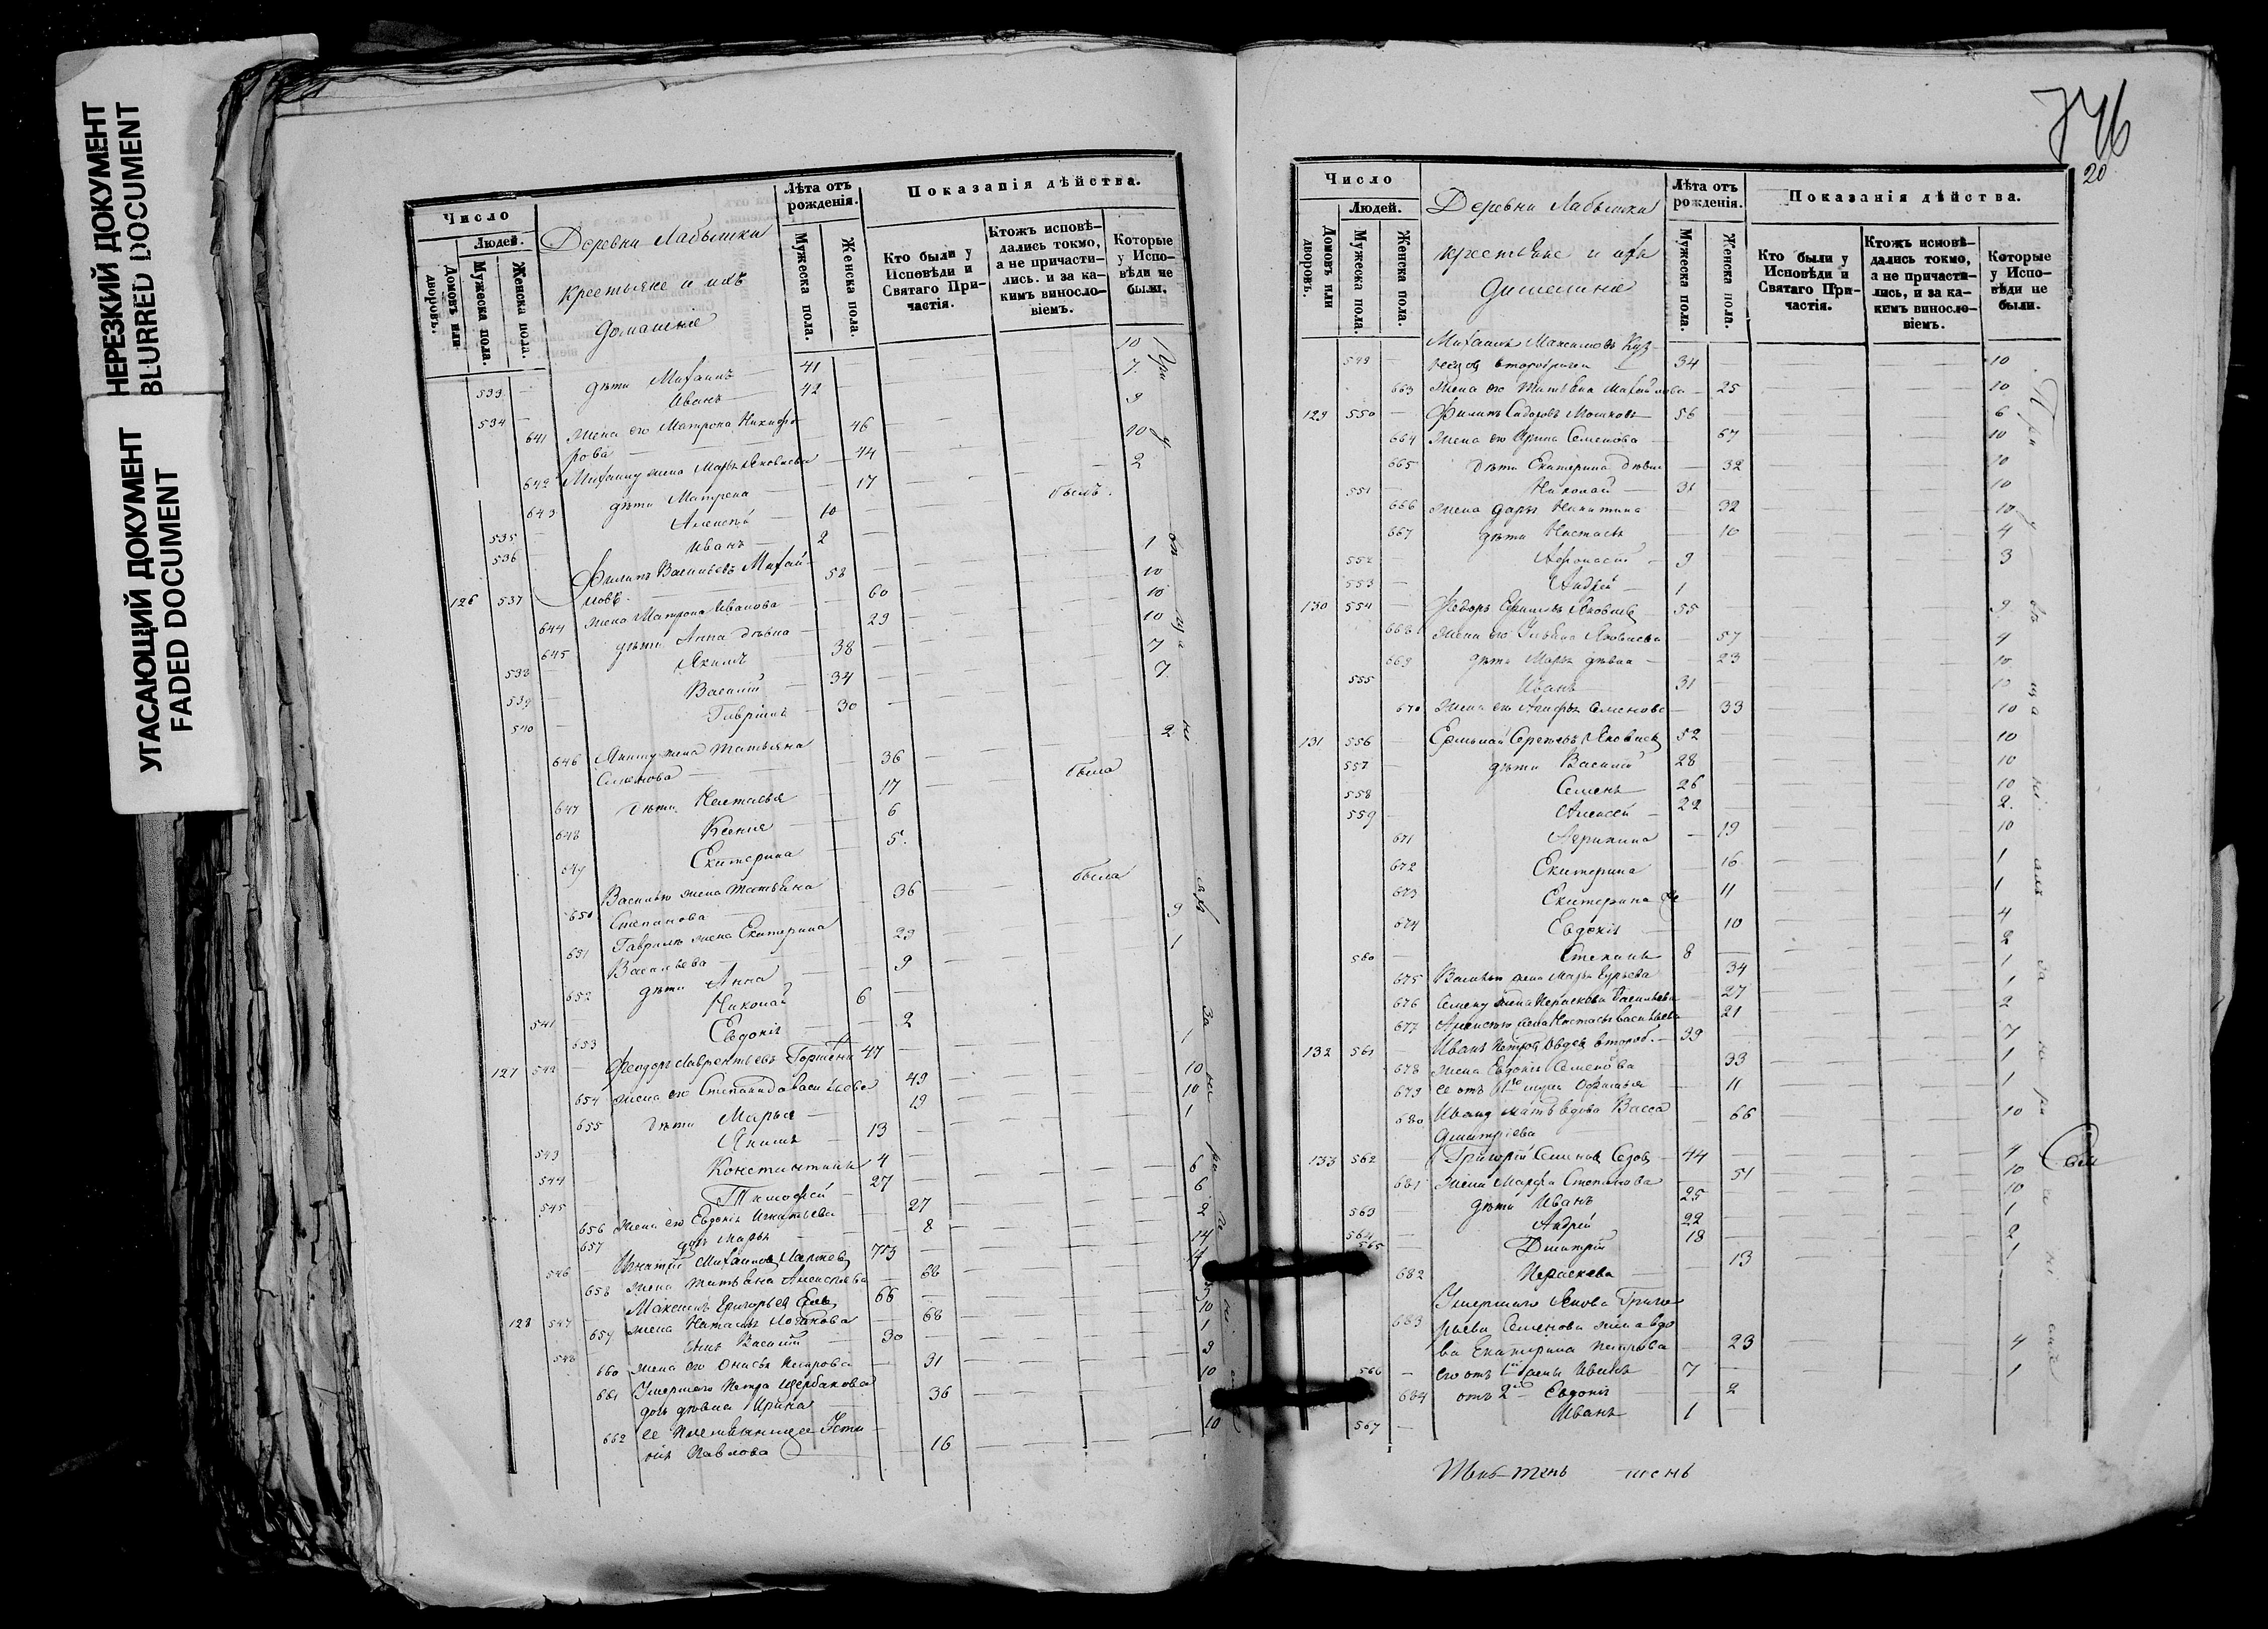 НЕРЕЗКИЙ ДОКУМЕНТ
BLURRED DOCUMENT
УГАСАЮЩИЙ ДОКУМЕНТ
FADED DOCUMENT
Число
Людей.
Домовъ или дворовъ.
Мужеска пола.
Женска пола.
Деревни Лабышки
крестьяне и ихъ
домашніе
Лѣта отъ рожденія.
Мужеска пола.
Женска пола.
Показанія дѣйства.
Кто были у Исповѣди и Святаго Причастія.
Ктожъ исповѣдались токмо, а не причастились. и за какимъ винословіемъ.
Которые у Исповѣди не были.
533 дѣти Михаилъ 41 10
Иванъ 42 7
534
641 жена его Матрона Никифо-
рова 46 9
642 Михаилу жена Марья Яковлева 44 10
643 дѣти Матрена 17 2
535 Алексѣй 10 былъ
536 Иванъ 2
126 537 Филипъ Васильевъ Михай-
ловъ 58 1
644 жена Матрона Иванова 60 10
645 дѣти Анна дѣвка 29 10
538 Якимъ 38 10
539 Василій 34 7
540 Гаврилъ 30 7
646 Якиму жена Татьяна
Семенова 36 2
647 дѣти Настасья 17 была
648 Ксенія 6
649 Екатерина 5
650 Василью жена Татьяна
Степанова 36 была
651 Гаврилѣ жена Екатерина
Васильева 29 9
652 дѣти Анна 9 1
541 Николай 6
653 Евдокія 2
127 542 Феодоръ Лаврентьевъ 47 1
654 жена его Степанида Васильева 49 10
655 дѣти Марья 19 10
543 Якимъ 13 1
544 Константинъ 4
545 Тимофей 27 6
656 жена его Евдокія Игнатьева 27 6
657 дочь Марья 8 2
546 Игнатій Михаиловъ 73 14
658 жена Татьяна Алексѣева 66
128 547 Максимъ Григорьевъ 66
659 жена Наталья 68 10
548 сынъ Василій 30 1
660 жена его Онисья Петрова 31 9
661 Умершаго Петра Щербакова
дочь дѣвка Ирина 36 10
662 ее племянница Усти-
нія Павлова 16 10
746
20
Число
Людей.
Домовъ или дворовъ.
Мужеска пола.
Женска пола.
Деревни Лабышки
крестьяне и ихъ
домашніе
Лѣта отъ рожденія.
Мужеска пола.
Женска пола.
Показанія дѣйства.
Кто были у Исповѣди и Святаго Причастія.
Ктожъ исповѣдались токмо, а не причастились, и за какимъ винословіемъ.
Которые у Исповѣди не были.
Михаилъ Максимовъ Куз-
549 нецовъ второбрачн 34 10
663 жена его Татьяна Михайлова 25 10
129 550 Филипъ Сидоровъ Мошковъ 56 6
664 жена его Ирина Семенова 67 10
665 дѣти Екатерина дѣвка 32 10
551 Николай 31 10
666 жена Дарья Никитина 32 10
667 дѣти Настасья 10 4
552 Афонасій 9 3
553 Андрей 1
130 554 Федоръ Ефимовъ Яковлевъ 55 9
668 жена его Ульяна Яковлева 57 9
669 дѣти Марья дѣвка 23 10
555 Иванъ 31 10
670 жена его Семенова 33 10
131 556 Ермолай Сергѣевъ Яковлевъ 52 10
557 дѣти Василій 28 10
558 Семенъ 26 10
559 Алексей 22 2
671 Агрипина 19 10
672 Екатерина 16 1
673 Екатерина 2я 11 1
674 Евдокія 10 4
560 Степанъ 8 2
675 Василью жена Марья Гурьева 34 1
676 Семену жена Пераскева Васильева 27 1
677 Алексѣю жена Настасья Васильева 21 2
132 561 Иванъ Петровъ второб. 39 7
678 жена Евдокія Семенова 33 1
679 ее отъ 1го мужа 11 1
680 Ивану мать вдова Васса
Дмитріева 66 10
133 562 Григорій Семеновъ Седовъ 44 4
681 жена Марфа Степанова 51 10
563 дѣти Иванъ 25 10
564 Андрей 22 1
565 Дмитрій 18 2
682 Пераскева 13 1
683 Умершаго Якова Григо-
рьева Семенова жена вдо-
ва Екатерина Петрова 23 4
566 его отъ 1й жены Иванъ 7 1
684 отъ 2й Евдокія 2
567 Иванъ 1